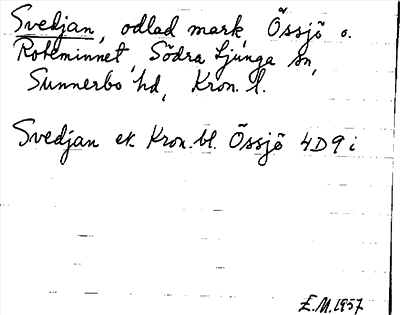 Svedjan, odlad mark, Össjö o.
Roteminnet, Södra Ljunga sn,
Sunnerbo hd, Kron. l.
Svedjan ek. Kron. bl. Össjö 4D9i
E.M. 1957